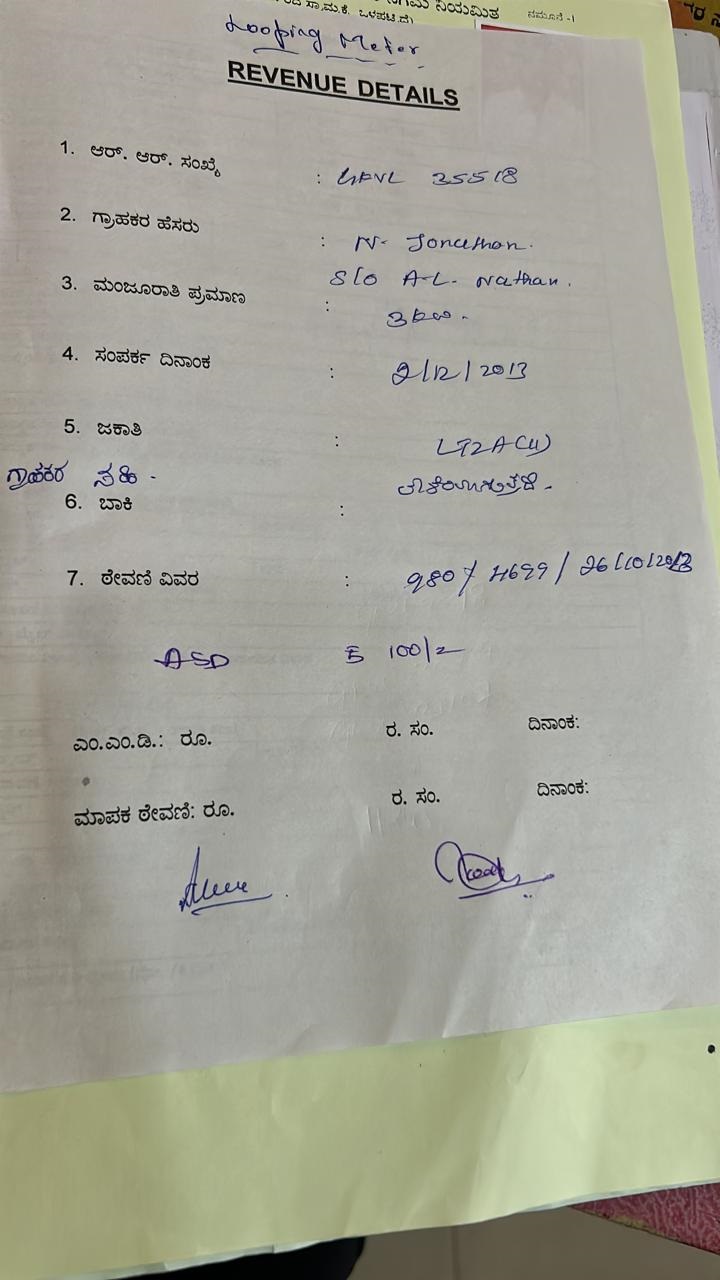 ನಿಯಮಿತ ನಮೂನೆ -1
Looping Meter
REVENUE DETAILS
1. ಆರ್. ಆರ್. ಸಂಖ್ಯೆ : 35518
2. ಗ್ರಾಹಕರ ಹೆಸರು : N. Jonathan.
S/o A-L. Nathan.
3. ಮಂಜೂರಾತಿ ಪ್ರಮಾಣ : 3kw.
4. ಸಂಪರ್ಕ ದಿನಾಂಕ : 2/12/2013
5. ಜಕಾತಿ : LT2A(ii)
ಗ್ರಾಹಕರ ಸಹಿ.
6. ಬಾಕಿ :
7. ಠೇವಣಿ ವಿವರ : 980/ 4699/ 26/10/2013
ASD 100/-
ಎಂ.ಎಂ.ಡಿ.: ರೂ. ರ. ಸಂ. ದಿನಾಂಕ:
ಮಾಪಕ ಠೇವಣಿ: ರೂ. ರ. ಸಂ. ದಿನಾಂಕ: